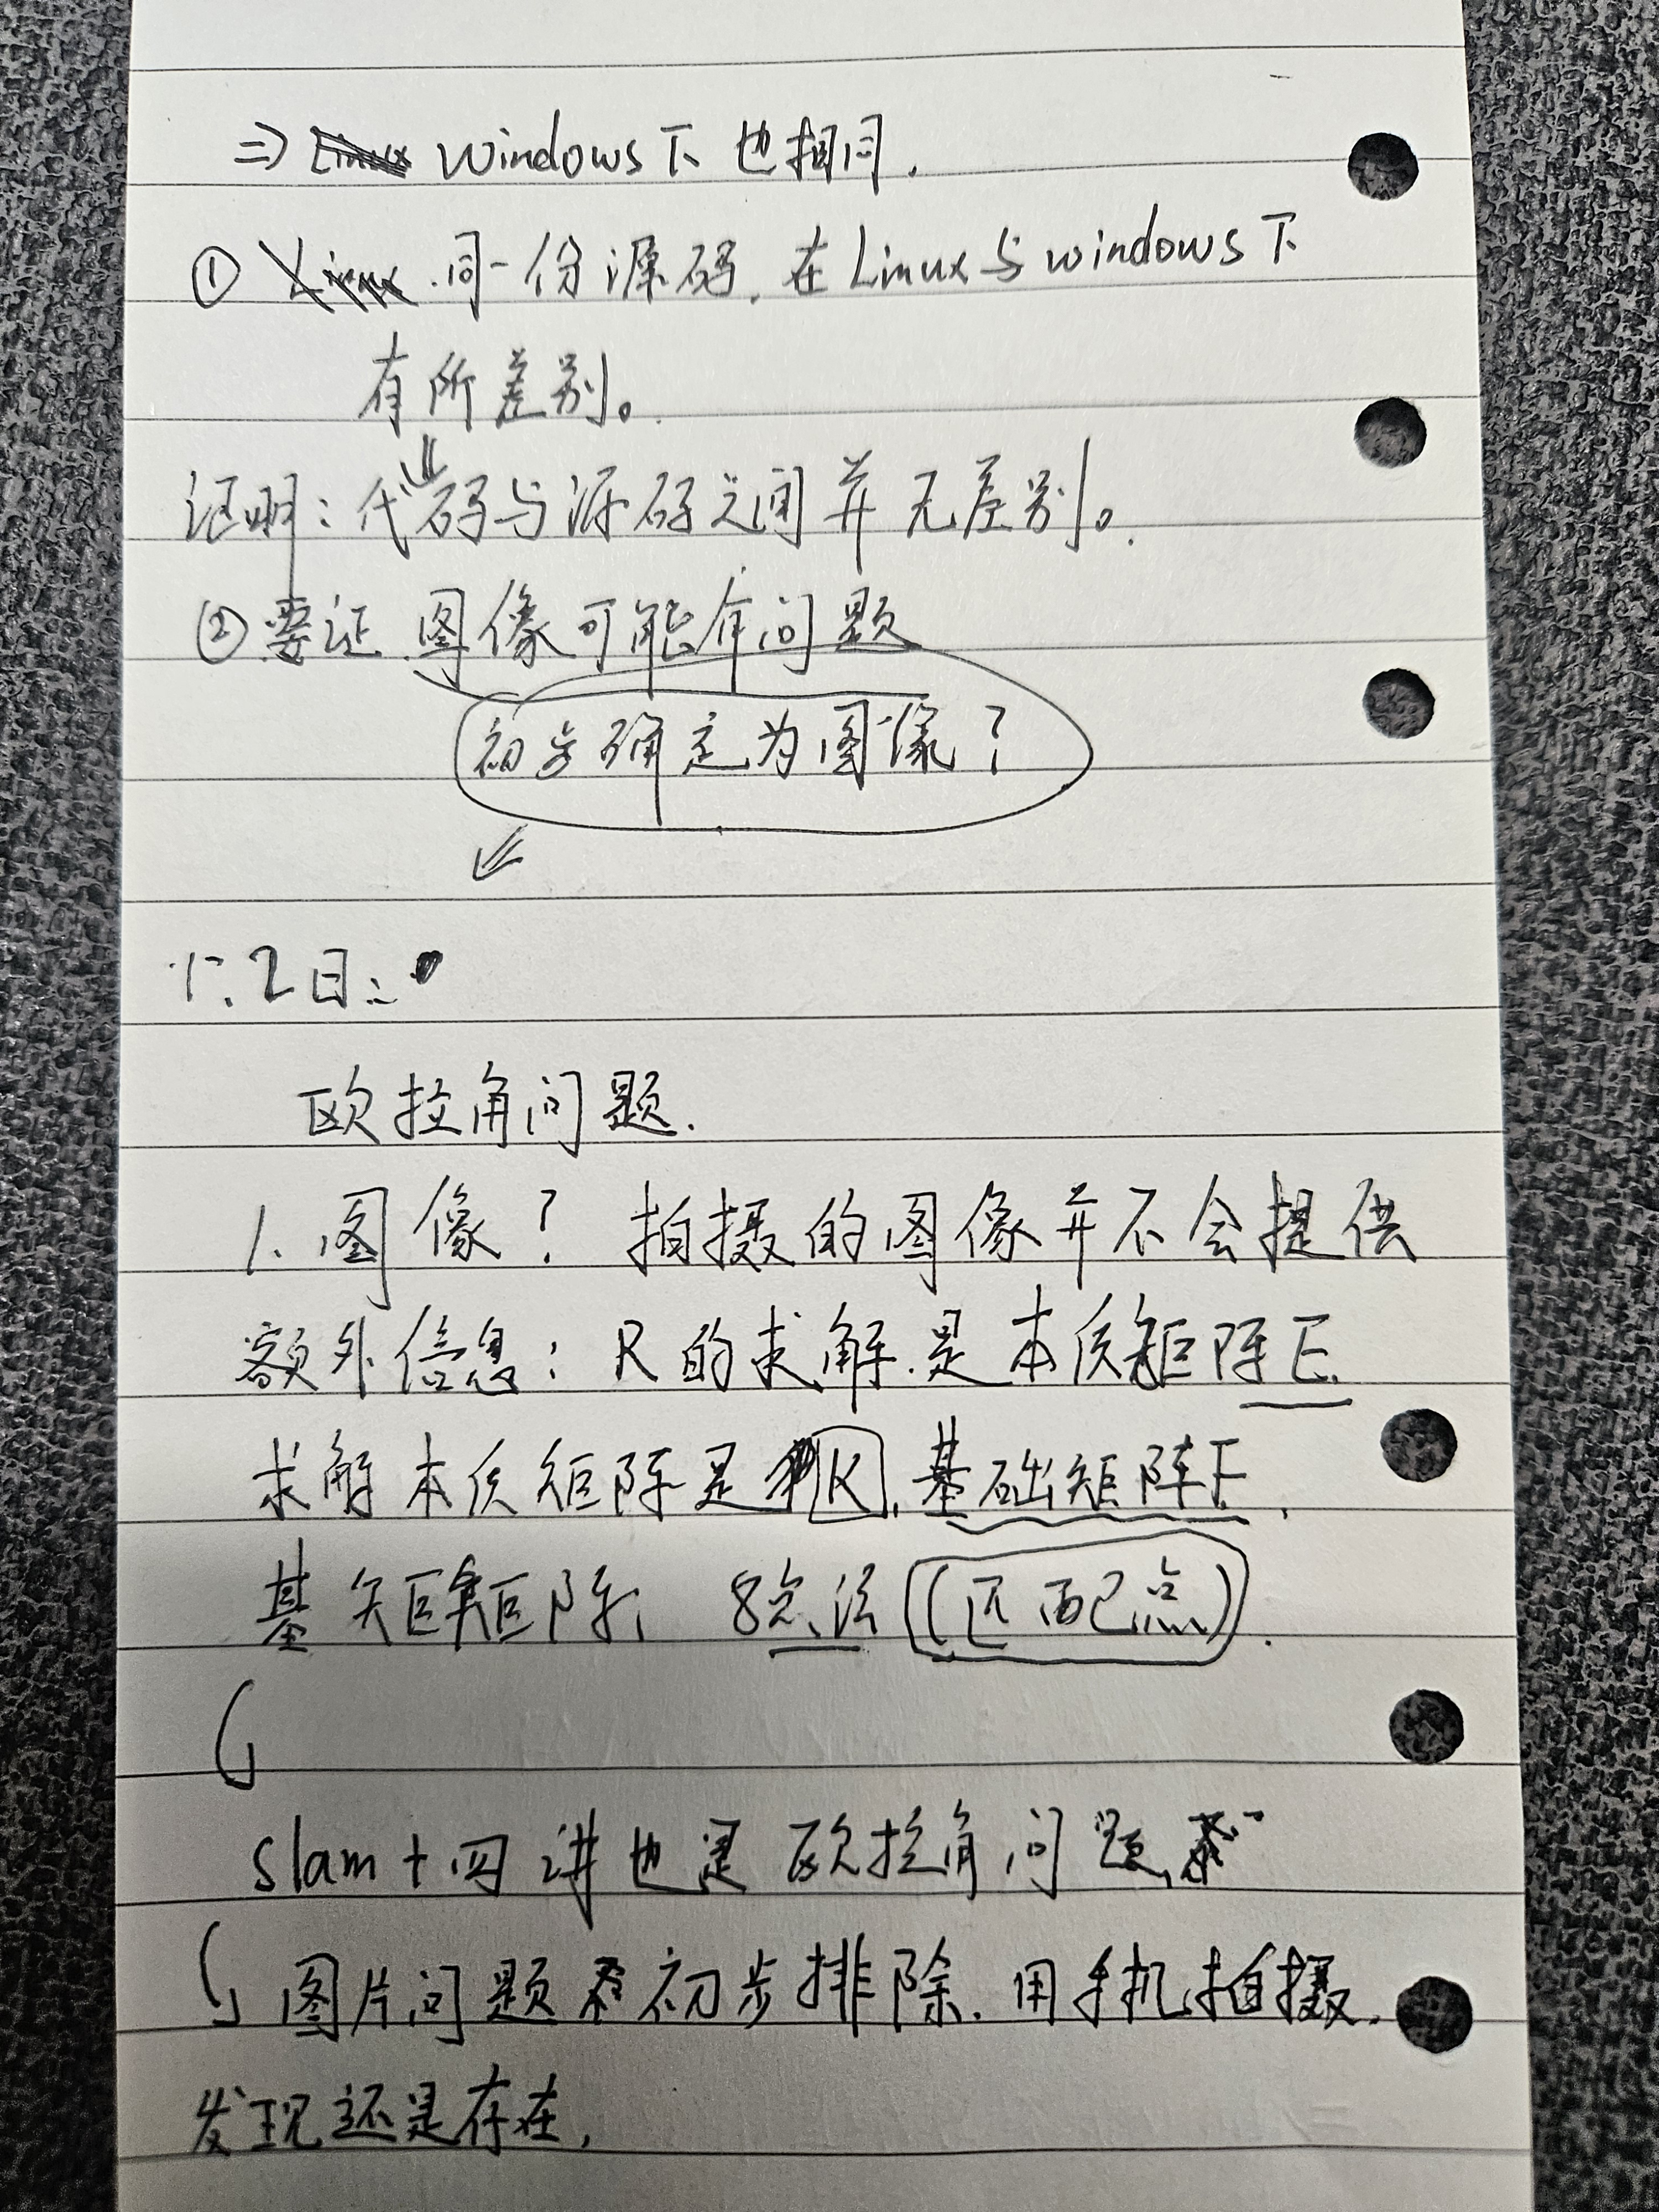 => windows下也相同.
① 同一份源码, 在Linux与windows下
有所差别。
证明: 代码与源码之间并无差别。
② 要证 图像可能有问题
初步确定为图像?
2日:
欧拉角问题.
1. 图像? 拍摄的图像并不会提供
额外信息: R的求解是本质矩阵E.
求解本质矩阵是 K, 基础矩阵F,
基 矩阵, 8点法 (匹配点).
slam十四讲也是欧拉角问题,
图片问题 初步排除. 用手机拍摄.
发现还是存在,